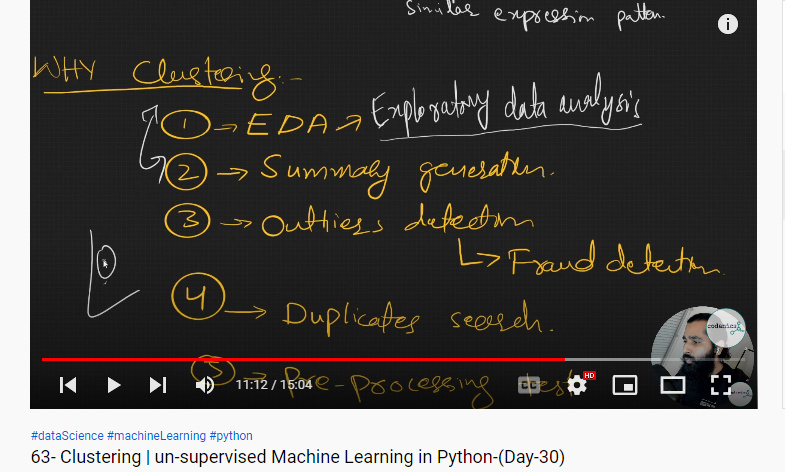 similar expression pattern.
WHY Clustering:-
1 → EDA → Exploratory data analysis
2 → Summary generation.
3 → Outliers detection
↳ Fraud detection
4 → Duplicates search.
5 → Pre-processing
codanics
HD
11:12 / 15:04
CC
#dataScience #machineLearning #python
63- Clustering | un-supervised Machine Learning in Python-(Day-30)